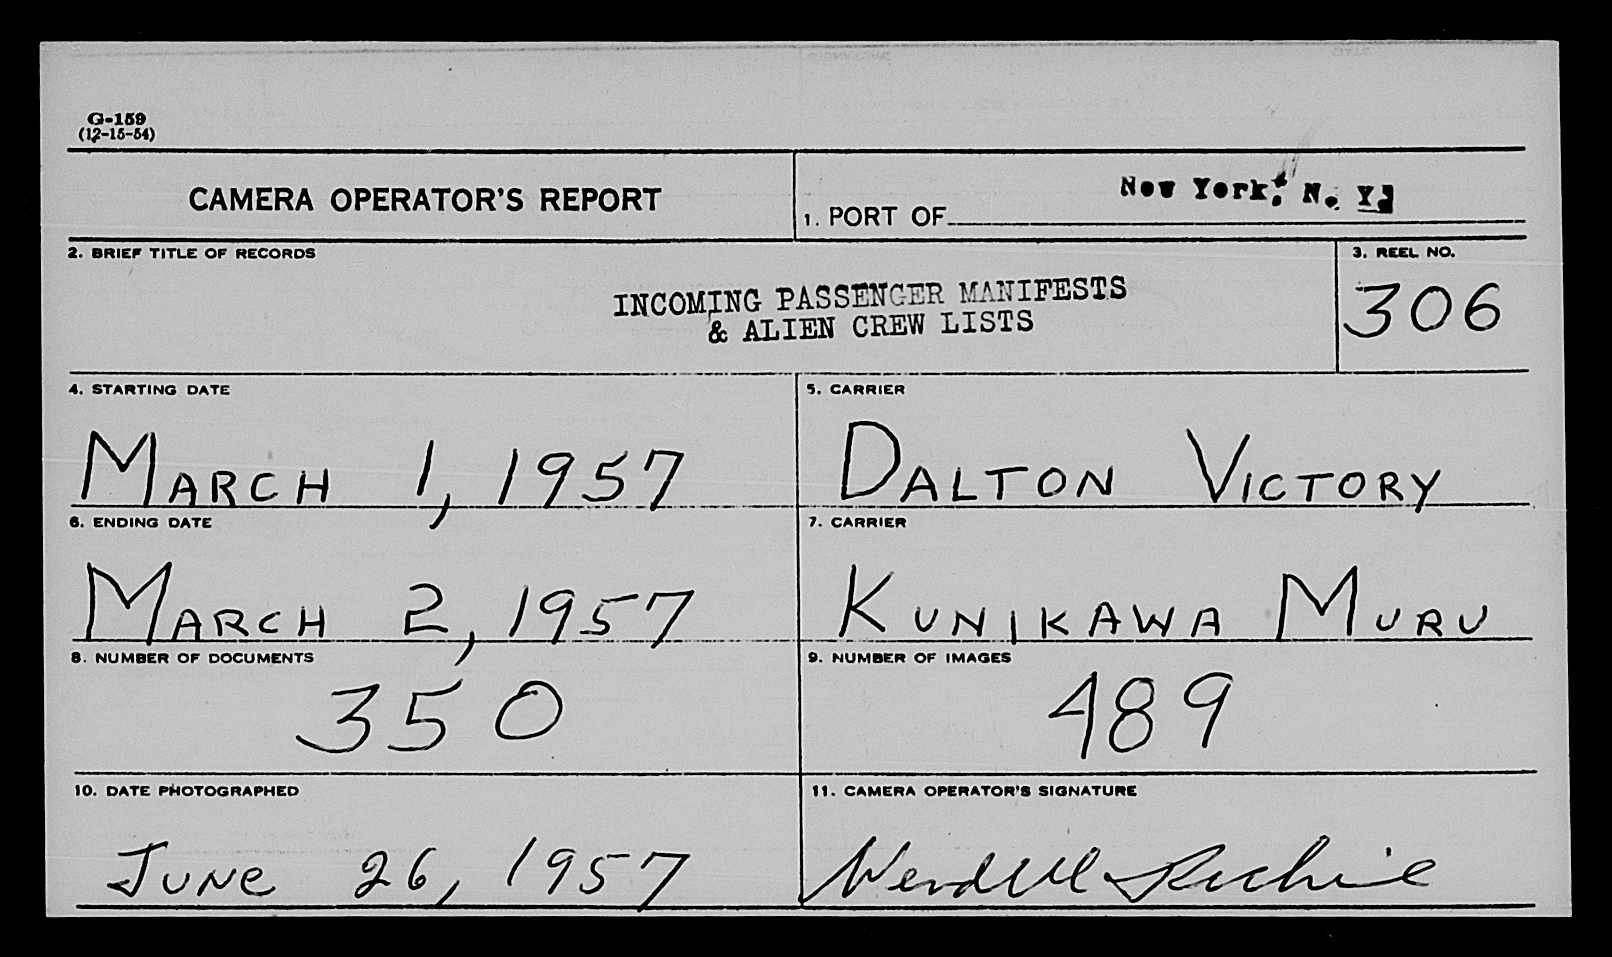 G-159
(12-15-54)
CAMERA OPERATOR'S REPORT
1. PORT OF New York, N. Y.
2. BRIEF TITLE OF RECORDS
INCOMING PASSENGER MANIFESTS
& ALIEN CREW LISTS
3. REEL NO.
306
4. STARTING DATE
MARCH 1, 1957
5. CARRIER
DALTON VICTORY
6. ENDING DATE
MARCH 2, 1957
7. CARRIER
KUNIKAWA MURU
8. NUMBER OF DOCUMENTS
350
9. NUMBER OF IMAGES
489
10. DATE PHOTOGRAPHED
JUNE 26, 1957
11. CAMERA OPERATOR'S SIGNATURE
Wendell Ritchie